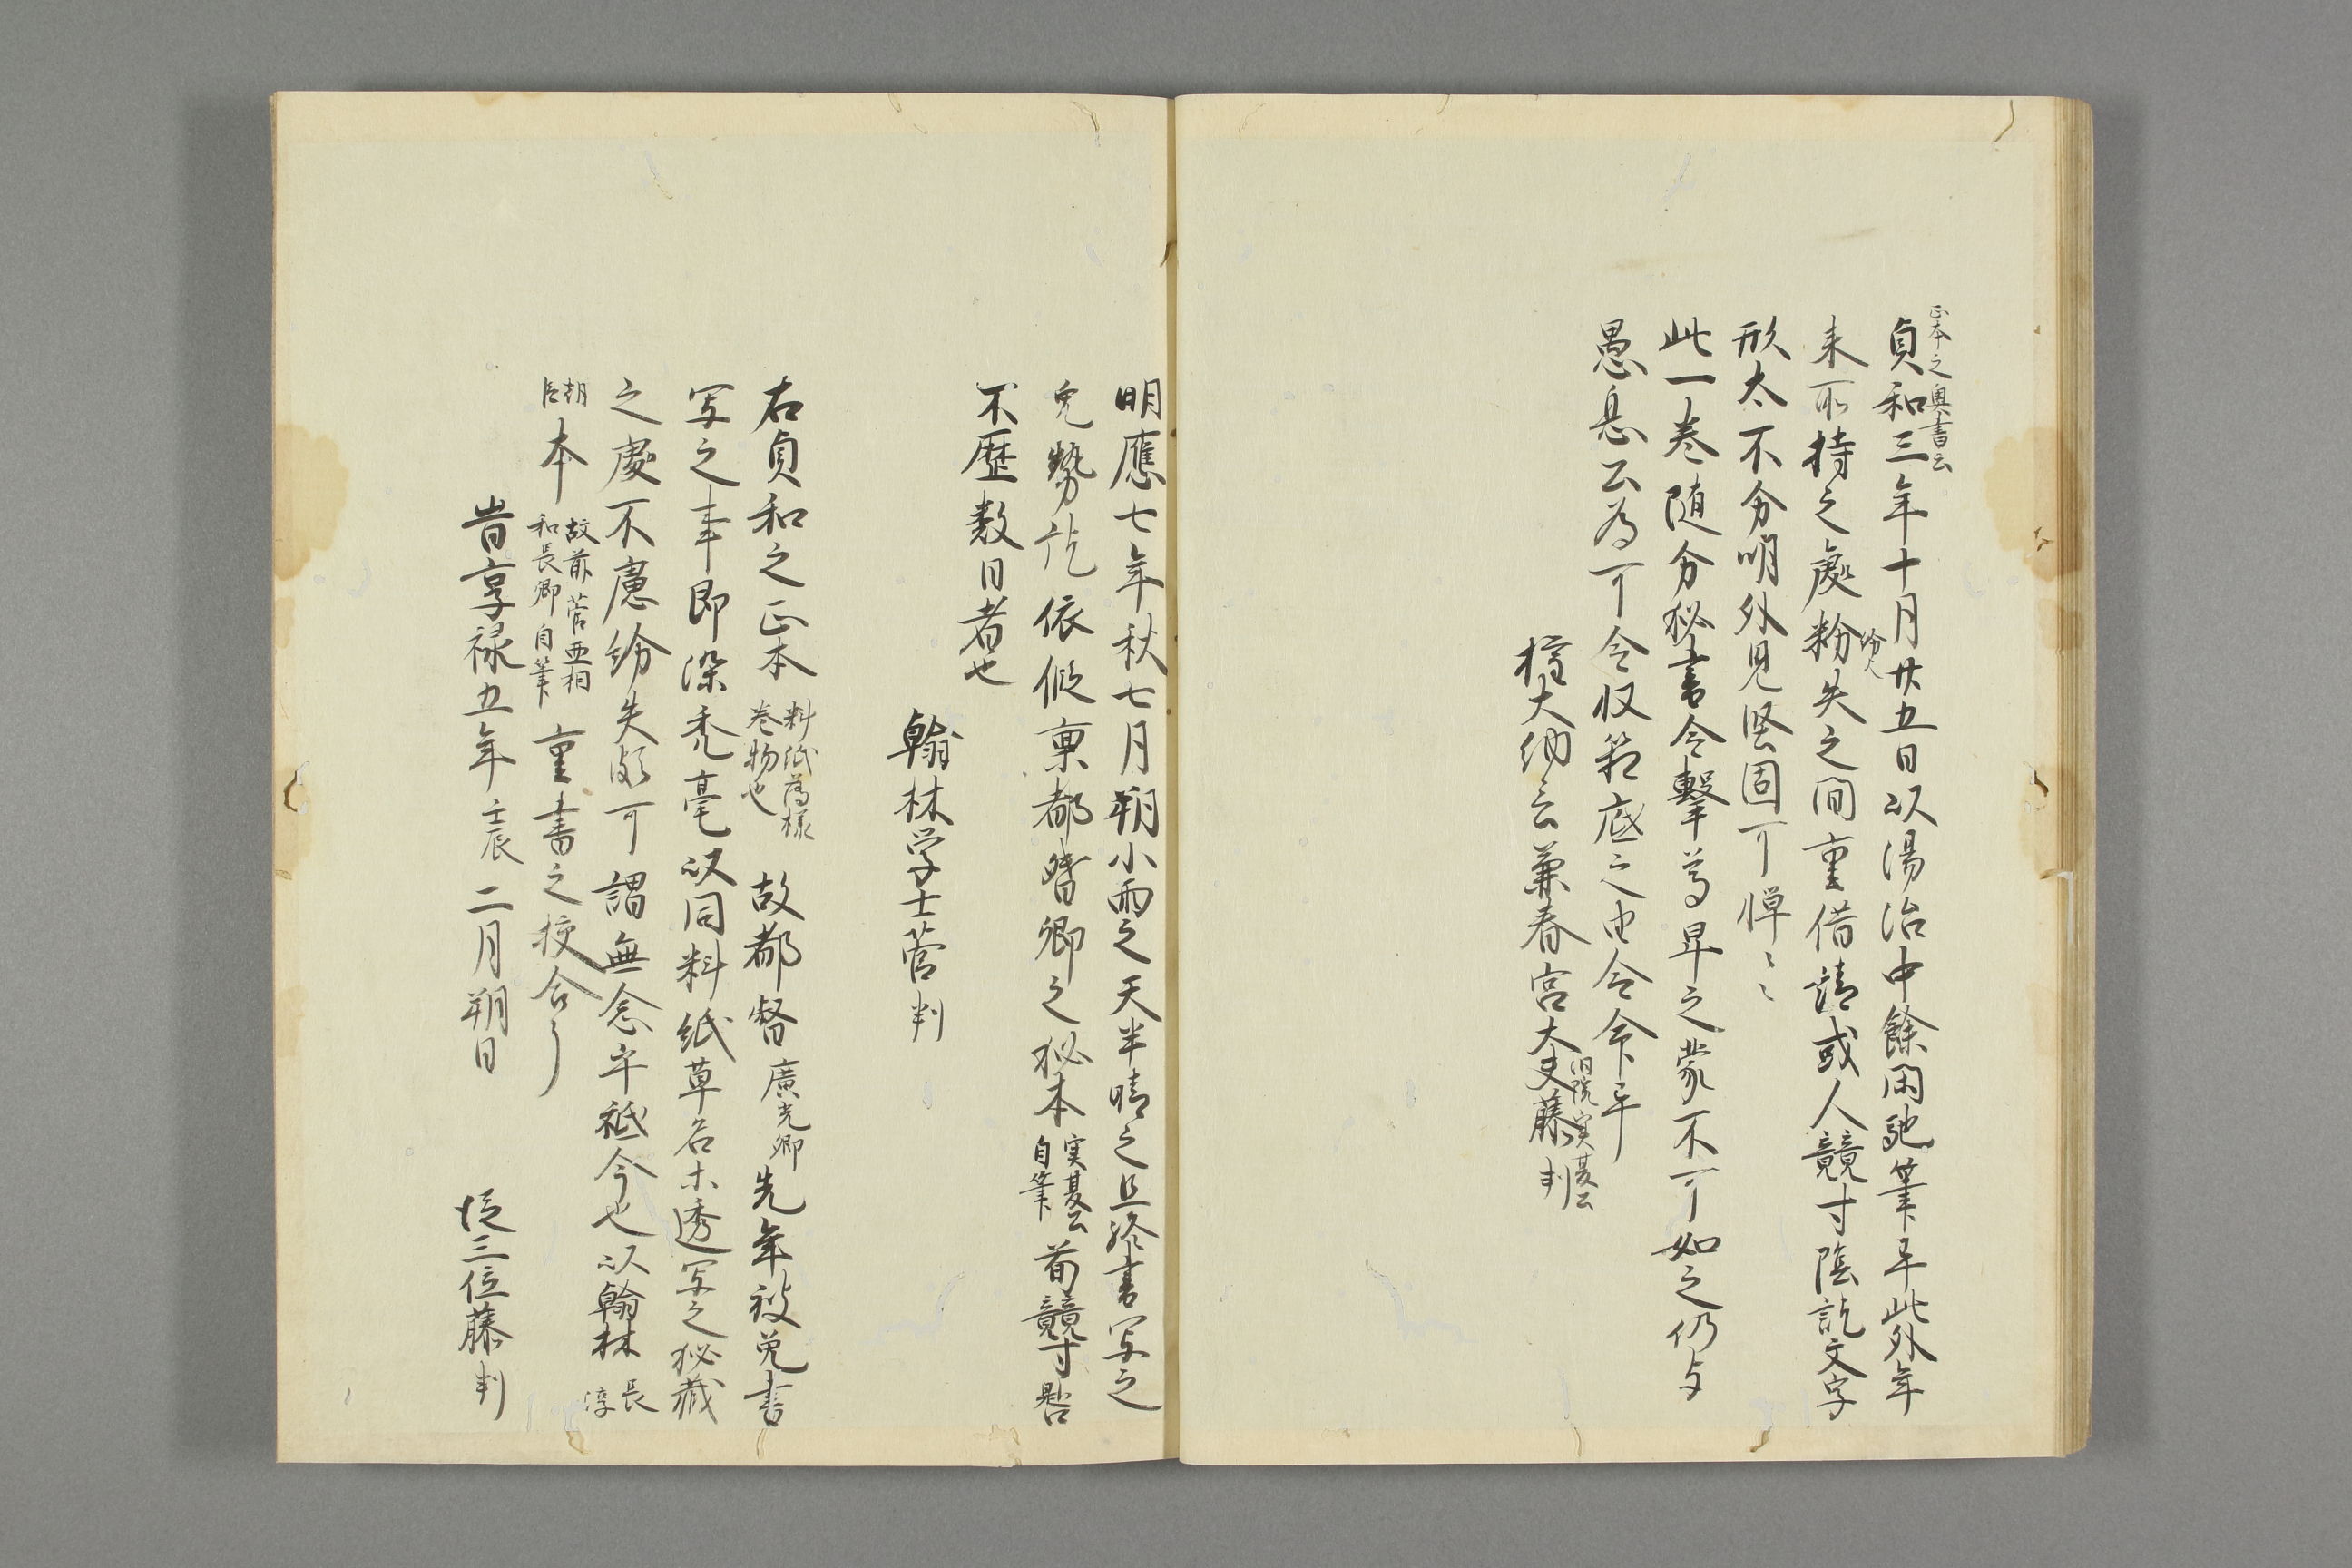 正本之奥書云
貞和三年十月廿五日以湯治中餘閑馳筆畢此外年
来所持之處粉失之間重借請或人競寸陰訖文字
紛欤
形太不分明外見堅固可憚〻〻
此一巻随分秘書令擊蒙早之蒙不可如之仍与
愚息公為可令収箱底之由令命畢
権大納言兼春宮大夫藤判
洞院実夏公
明應七年秋七月朔小雨之天半晴之且終書写之
免勢訖依假稟都督卿之秘本実夏公自筆荀競寸晷
不歴数日者也
翰林学士菅判
右貞和之正本料紙薄様巻物也故都督廣光卿先年被免書
写之事即染禿毫以同料紙草名木透写之秘蔵
之處不慮紛失頗可謂無念乎祗今也以翰林長淳
朝臣本故前菅亜相和長卿自筆重書之校合了
旹享禄五年壬辰二月朔日 従三位藤判